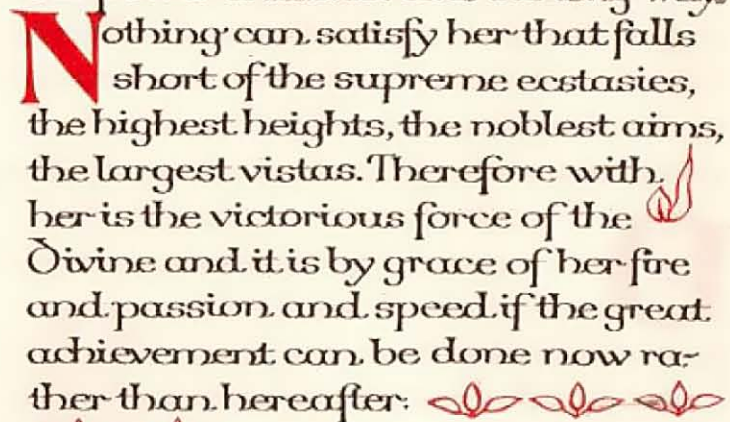 Nothing can satisfy her that falls
short of the supreme ecstasies,
the highest heights, the noblest aims,
the largest vistas. Therefore with
her is the victorious force of the
Divine and it is by grace of her fire
and passion and speed if the great
achievement can be done now ra-
ther than hereafter.